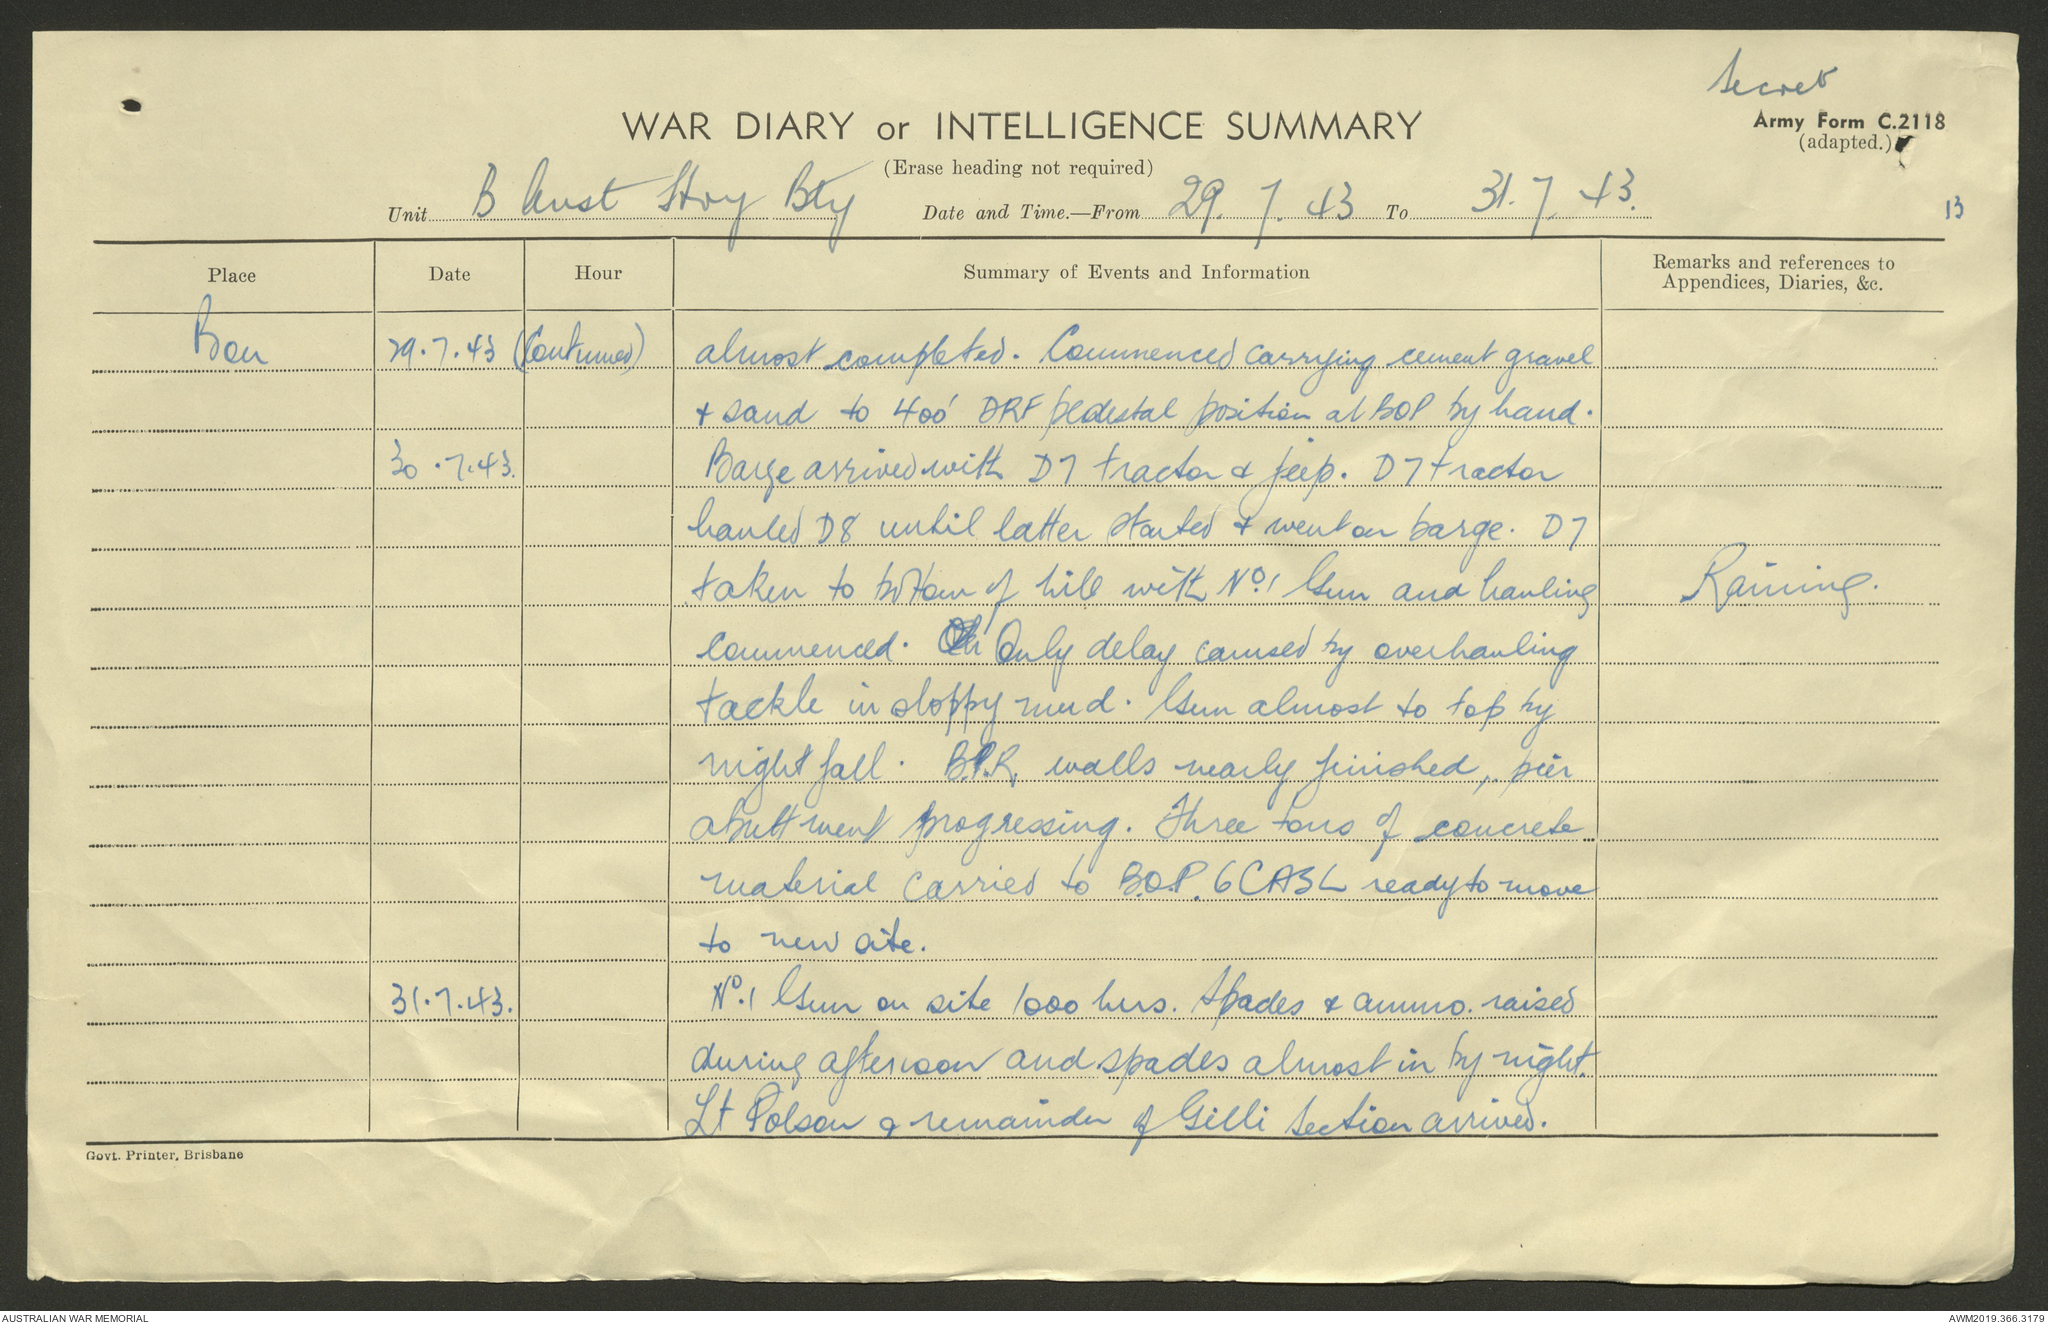 Secret
Army Form C.2118
(adapted.)
WAR DIARY or INTELLIGENCE SUMMARY
(Erase heading not required)
Unit B Aust Hvy Bty Date and Time.—From 29.7.43 To 31.7.43.
13
Place Date Hour Summary of Events and Information Remarks and references to
Appendices, Diaries, &c.
29.7.43 (Continued) almost completed. Commenced carrying cement gravel
& sand to 400' DRF pedestal position at BOP by hand.
30.7.43. Barge arrived with D7 tractor & jeep. D7 tractor
hauled D8 until latter started & went on barge. D7
taken to bottom of hill with No.1 Gun and hauling Raining.
commenced. Only delay caused by overhauling
tackle in sloppy mud. Gun almost to top by
nightfall. B.P.R. walls nearly finished, pier
abuttment progressing. Three tons of concrete
material carried to B.O.P. 6 CASL ready to move
to new site.
31.7.43. No.1 Gun on site 1000 hrs. Spades & ammo. raised
during afternoon and spades almost in by night.
Lt Polson & remainder of Gilli Section arrived.
Govt. Printer, Brisbane
AUSTRALIAN WAR MEMORIAL AWM2019.366.3179